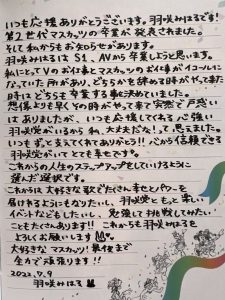 いつも応援ありがとうございます。羽咲みはるです!
第2世代マスカッツの卒業が発表されました。
そして私からもお知らせがあります。
羽咲みはるは S1、AVから卒業しようと思います。
私にとってVのお仕事とマスカッツのお仕事がイコールに
なっていた所があり、どちらかを辞める時がやって来た
時はどちらも卒業する事に決めていました。
想像よりも早くその時がやって来て実際に戸惑い
はありましたが、いつも応援してくれる心強い
羽咲党がいるから私、大丈夫だな!って思えました。
いつもずっと支えてくれてありがとう!!心から信頼できる
羽咲党がいてとても幸せです。
これからの人生のステップアップをしていけるように
選んだ選択です。
これからは大好きな歌でたくさん幸せとパワーを
届けれるようにもなりたいし、羽咲党ともっと楽しい
イベントなどもしたいし、勉強して挑戦してみたい
こともたくさんあります!! これからも羽咲みはるを
よろしくお願いします
大好きなマスカッツ!最後まで
全力で頑張ります!!
2022.7.9
羽咲みはる